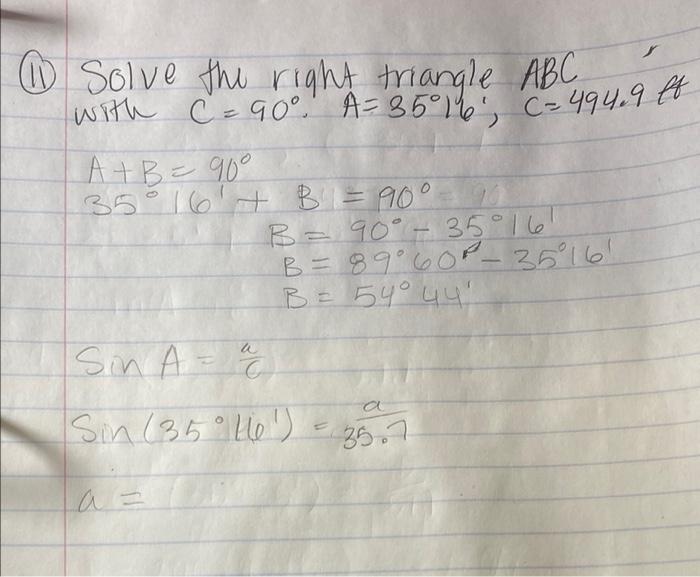 (11) Solve the right triangle ABC
with C = 90°. A = 35°16', C = 494.9 ft
A + B = 90°
35°16' + B = 90°
B = 90° - 35°16'
B = 89°60' - 35°16'
B = 54°44'
Sin A = a/c
Sin (35°16') = a/35.7
a =